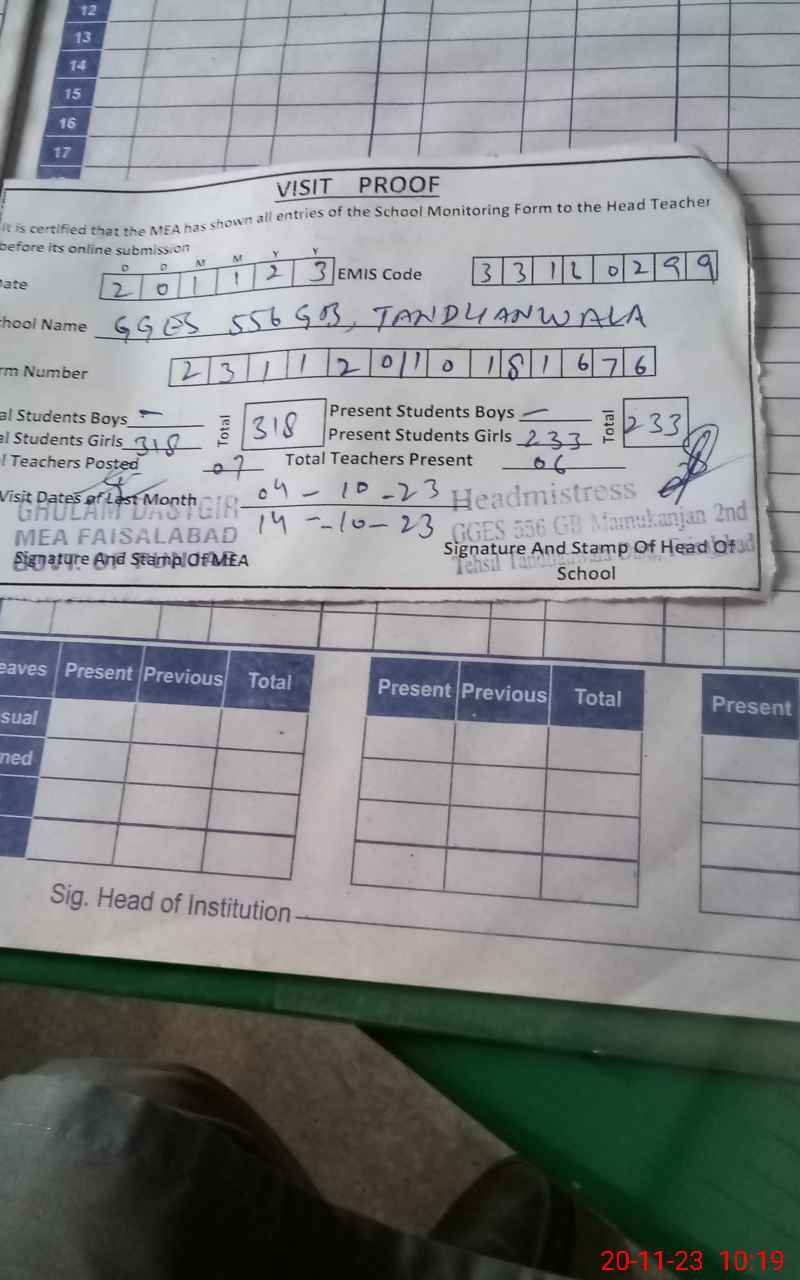 12
13
14
15
16
17
VISIT PROOF
It is certified that the MEA has shown all entries of the School Monitoring Form to the Head Teacher
before its online submission
D D M M Y Y
ate 2 0 1 1 2 3 EMIS Code 3 3 1 2 0 2 9 9
hool Name GGES 556 GB, TANDLIANWALA
rm Number 2 3 1 1 2 0 1 0 1 8 1 6 7 6
al Students Boys — Total 318 Present Students Boys — Total 233
al Students Girls 318 Present Students Girls 233
l Teachers Posted 07 Total Teachers Present 06
Visit Dates of Last Month 04 - 10 - 23
14 - 10 - 23
GHULAM DASTGIR
MEA FAISALABAD
Signature And Stamp Of MEA
Headmistress
GGES 556 GB Mamukanjan 2nd
Signature And Stamp Of Head Of
School
eaves Present Previous Total Present Previous Total Present
sual
ned
Sig. Head of Institution
20-11-23 10:19